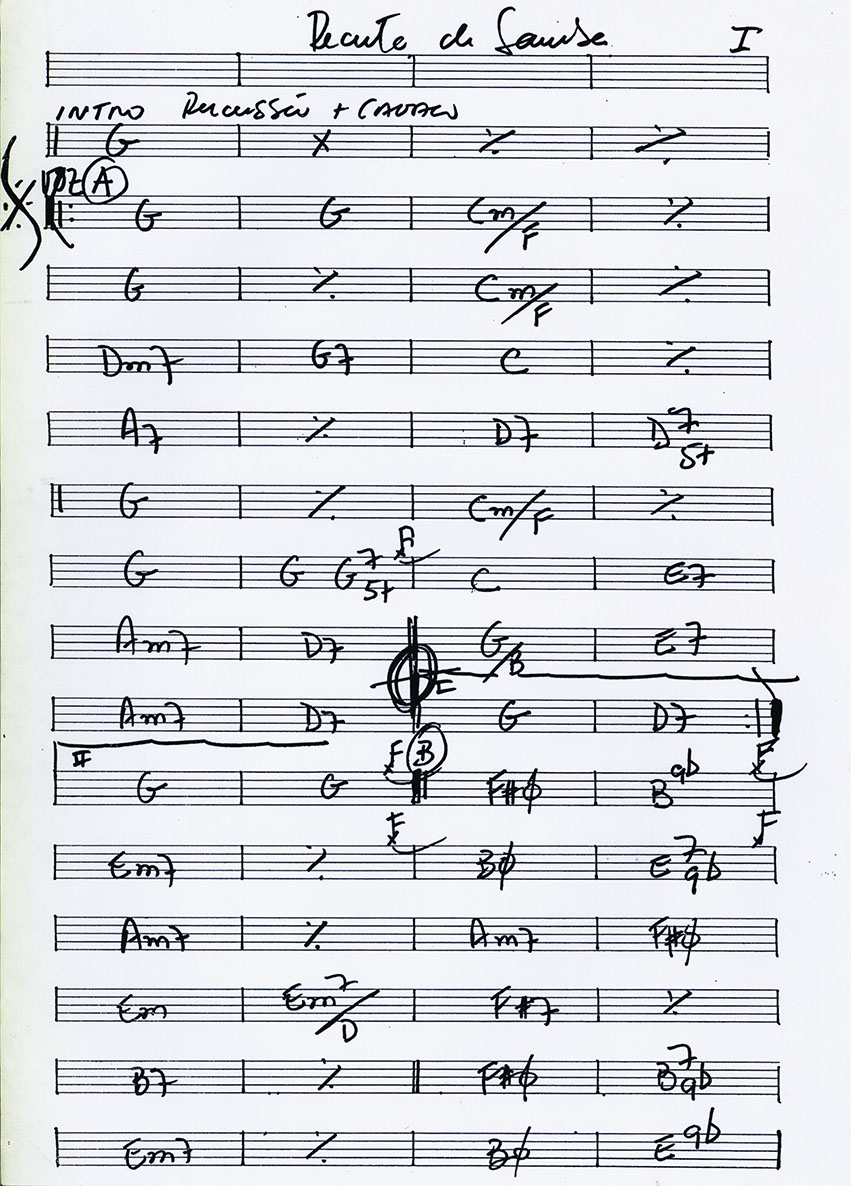 I
INTRO Percussão + CAVACO
G x ٪ ٪
VOZ A
G G Cm/F ٪
G ٪ Cm/F ٪
Dm7 G7 C ٪
A7 ٪ D7 D7 5+
G ٪ Cm/F ٪
F
G G G7 5+ C E7
Am7 D7 G/B E7
Am7 D7 G D7
II F B F
G G F#ø B9b
F F
Em7 ٪ Bø E7 9b
Am7 ٪ Am7 F#ø
Em Em7/D F#7 ٪
B7 ٪ F#ø B7 9b
Em7 ٪ Bø E9b